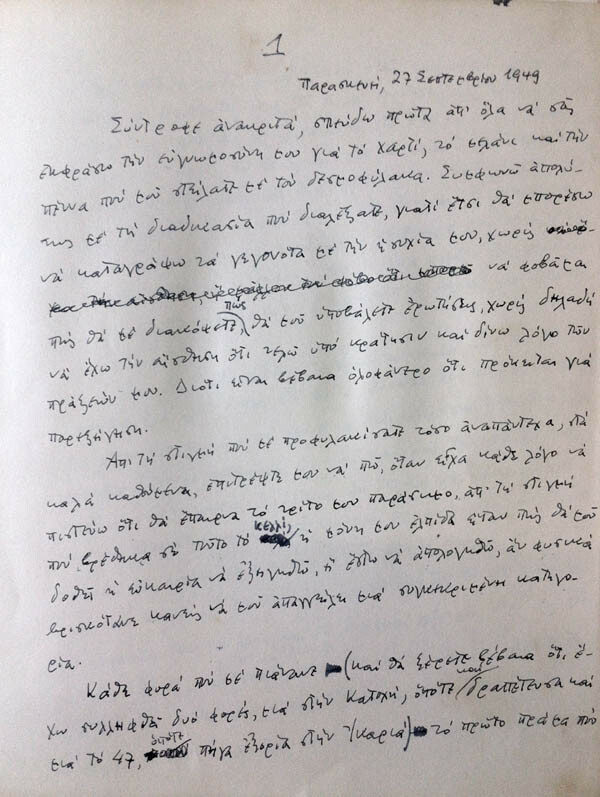 1
Παρασκευή, 27 Σεπτεμβρίου 1949
Σύντροφε ἀνακριτά, σπεύδω πρῶτα ἀπ' ὅλα νά σᾶς
ἐκφράσω τήν εὐγνωμοσύνη μου γιά τό χαρτί, τό μελάνι καί τήν
πέννα πού μοῦ στείλατε μέ τόν δεσμοφύλακα. Συμφωνῶ ἀπολύ-
τως μέ τή διαδικασία πού διαλέξατε, γιατί ἔτσι θά μπορέσω
νά καταγράψω τά γεγονότα μέ τήν ἡσυχία μου, χωρίς
νά φοβᾶμαι
πώς θά μέ διακόψετε, πώς θά μοῦ ὑποβάλετε ἐρωτήσεις, χωρίς δηλαδή
νά ἔχω τήν αἴσθηση ὅτι τελῶ ὑπό κράτησιν καί δίνω λόγο τῶν
πράξεών μου. Διότι εἶναι βέβαια ὁλοφάνερο ὅτι πρόκειται γιά
παρεξήγηση.
Ἀπ' τή στιγμή πού μέ προφυλακίσατε τόσο ἀναπάντεχα, στά
καλά καθούμενα, ἐπιτρέψτε μου νά πῶ, ὅταν εἶχα κάθε λόγο νά
πιστεύω ὅτι θά ἔπαιρνα τό τρίτο μου παράσημο, ἀπ' τή στιγμή
πού βρέθηκα σέ τοῦτο τό κελλί, ἡ μόνη μου ἐλπίδα εἶταν πώς θά μοῦ
δοθεῖ ἡ εὐκαιρία νά ἐξηγηθῶ, ἤ ἔστω νά ἀπολογηθῶ, ἄν φυσικά
βρισκότανε κανείς νά μοῦ ἀπαγγείλει μιά συγκεκριμένη κατηγο-
ρία.
Κάθε φορά πού μέ πιάνανε (καί θά ξέρετε βέβαια ὅτι ἔ-
χω συλληφθεῖ δυό φορές, μιά στήν Κατοχή, ὁπότε καί δραπέτευσα καί
μιά τό 47, ὁπότε πῆγα ἐξορία στήν Ἰκαριά) τό πρῶτο πράμα πού